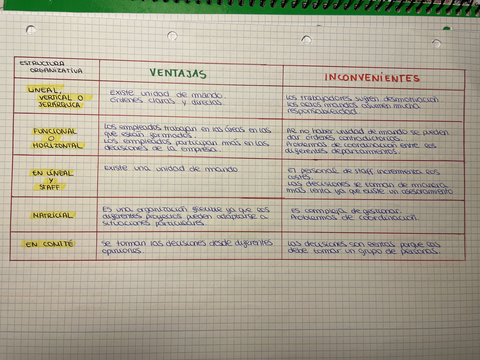 ESTRUCTURA
ORGANIZATIVA
VENTAJAS
INCONVENIENTES
LINEAL,
VERTICAL O
JERÁRQUICA
Existe unidad de mando
Órdenes claras y directas
Los trabajadores sufren desmotivación
Los altos mandos asumen mucha
responsabilidad
FUNCIONAL
O
HORIZONTAL
Los empleados trabajan en las áreas en las
que están formados.
Los empleados participan más en las
decisiones de la empresa.
Al no haber unidad de mando se pueden
dar órdenes contradictorias.
Problemas de coordinación entre los
diferentes departamentos.
EN LÍNEAL
Y
STAFF
Existe una unidad de mando
El personal de staff incrementa los
costes.
Las decisiones se toman de manera
más lenta ya que existe un asesoramiento
MATRICIAL
Es una organización flexible ya que los
diferentes proyectos pueden adaptarse a
situaciones particulares
Es compleja de gestionar.
Problemas de coordinación.
EN COMITÉ
Se toman las decisiones desde diferentes
opiniones.
Las decisiones son lentas porque las
debe tomar un grupo de personas.